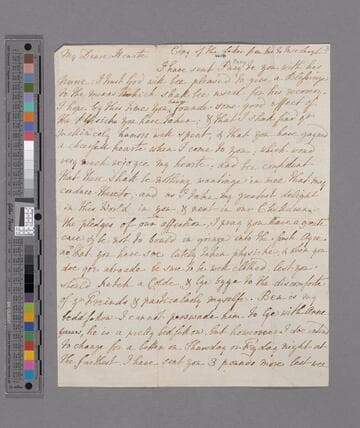 My Deare Hearte Copy of the letter from
I have sent Pay to you with his
Nurse. I trust God will bee pleased to give a Blessinge
to the meanes which shall bee used for his recovery.
I hope by this time you have founde some good effect of
the Phisick you have taken, & that I shall find yr
melancholy humors well spent, & that you have gayned
a chearefull hearte when I come to you, which woud
very much rejoyce my heart, and bee confident
that there shall be nothing wantinge in mee that may
conduce thereto, and as I take my greatest delight
in this World in you & next in our Children
the pledges of our affection, I pray you have a greate
care of
now that you have soe lately taken physicke, & when you
doe goe abroade be sure to be well clothed, lest you
should katch a Colde, & bringe to the discomforte
of yr Friends & particularly myselfe. Ben is my
Beddfellow I cannot perswade him to lye with
he is a pretty bedfellow, but however I do intend
to change for a better on Thursday or Fryday night at
the furthest I have sent you 3 pounds more lest wee